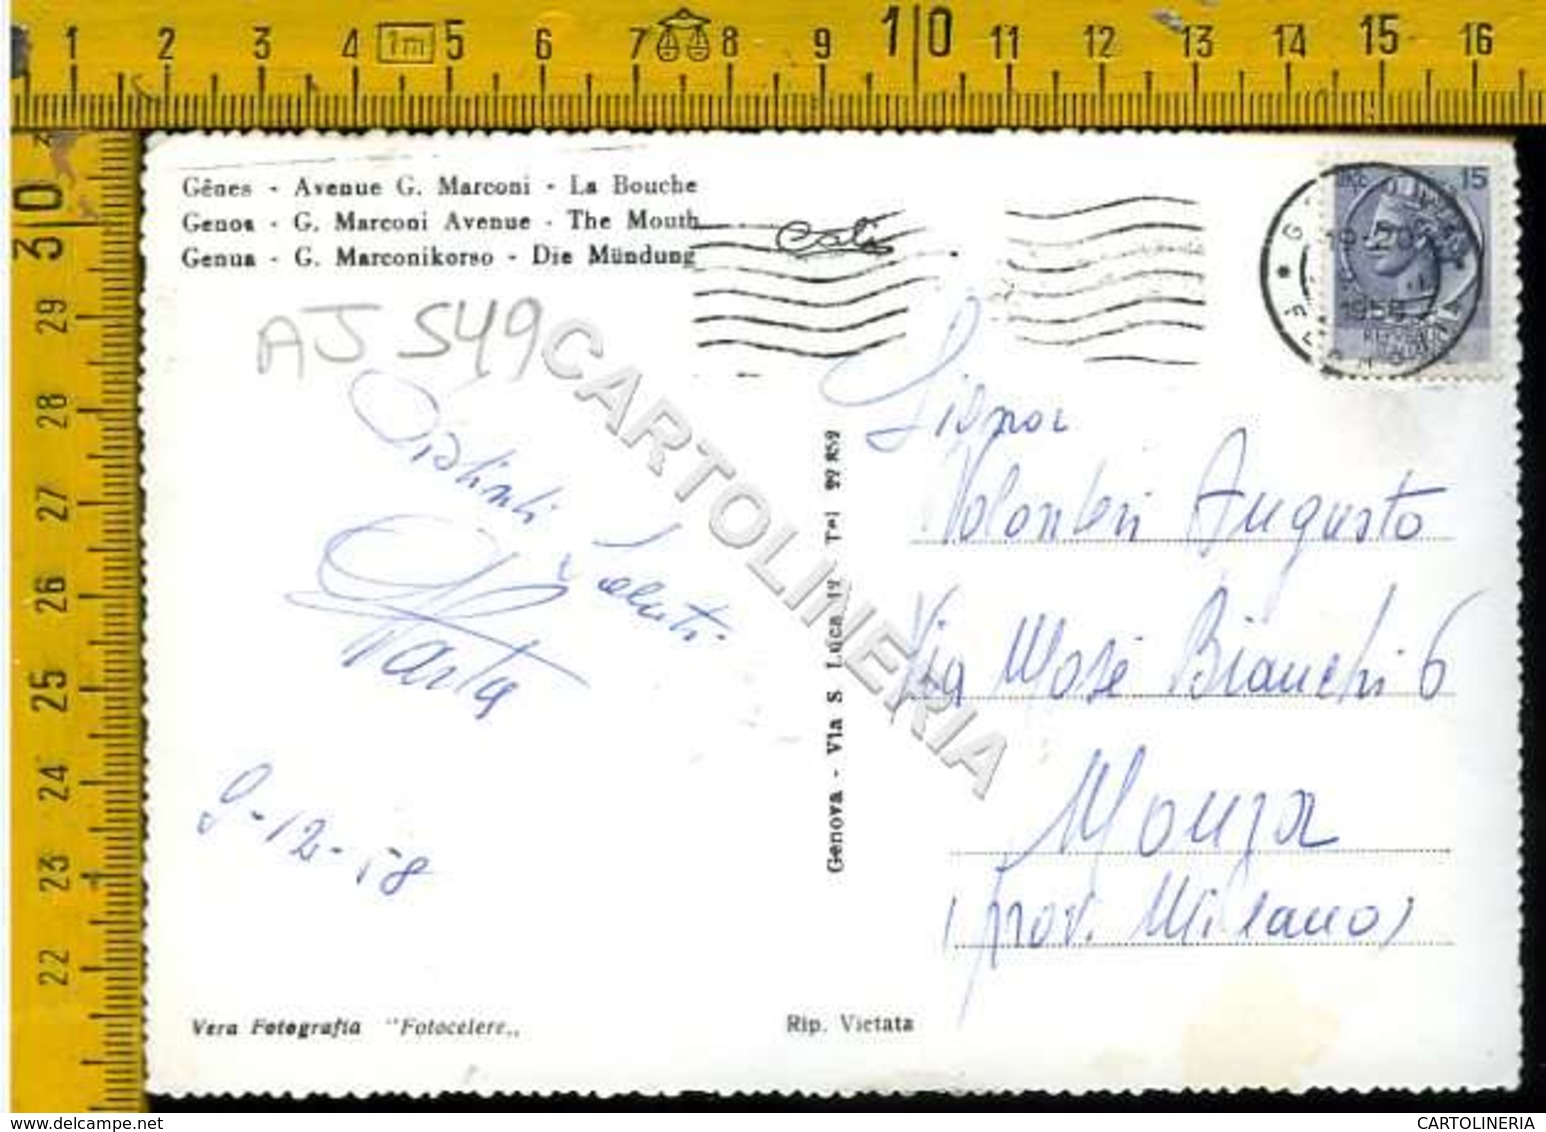 1 2 3 4 1m 5 6 7 8 9 10 11 12 13 14 15 16
30
29
28
27
26
25
24
23
22
Gênes - Avenue G. Marconi - La Bouche
Genoa - G. Marconi Avenue - The Mouth
Genua - G. Marconikorso - Die Mündung
15
AJ 549
CARTOLINERIA
Distinti Saluti
9-12-58
Genova - Via S Luca Tel
Signor
Volonteri Augusto
Via Mosé Bianchi 6
Monza
(prov. Milano)
Vera Fotografia "Fotocelere„
Rip. Vietata
delcampe.net
CARTOLINERIA